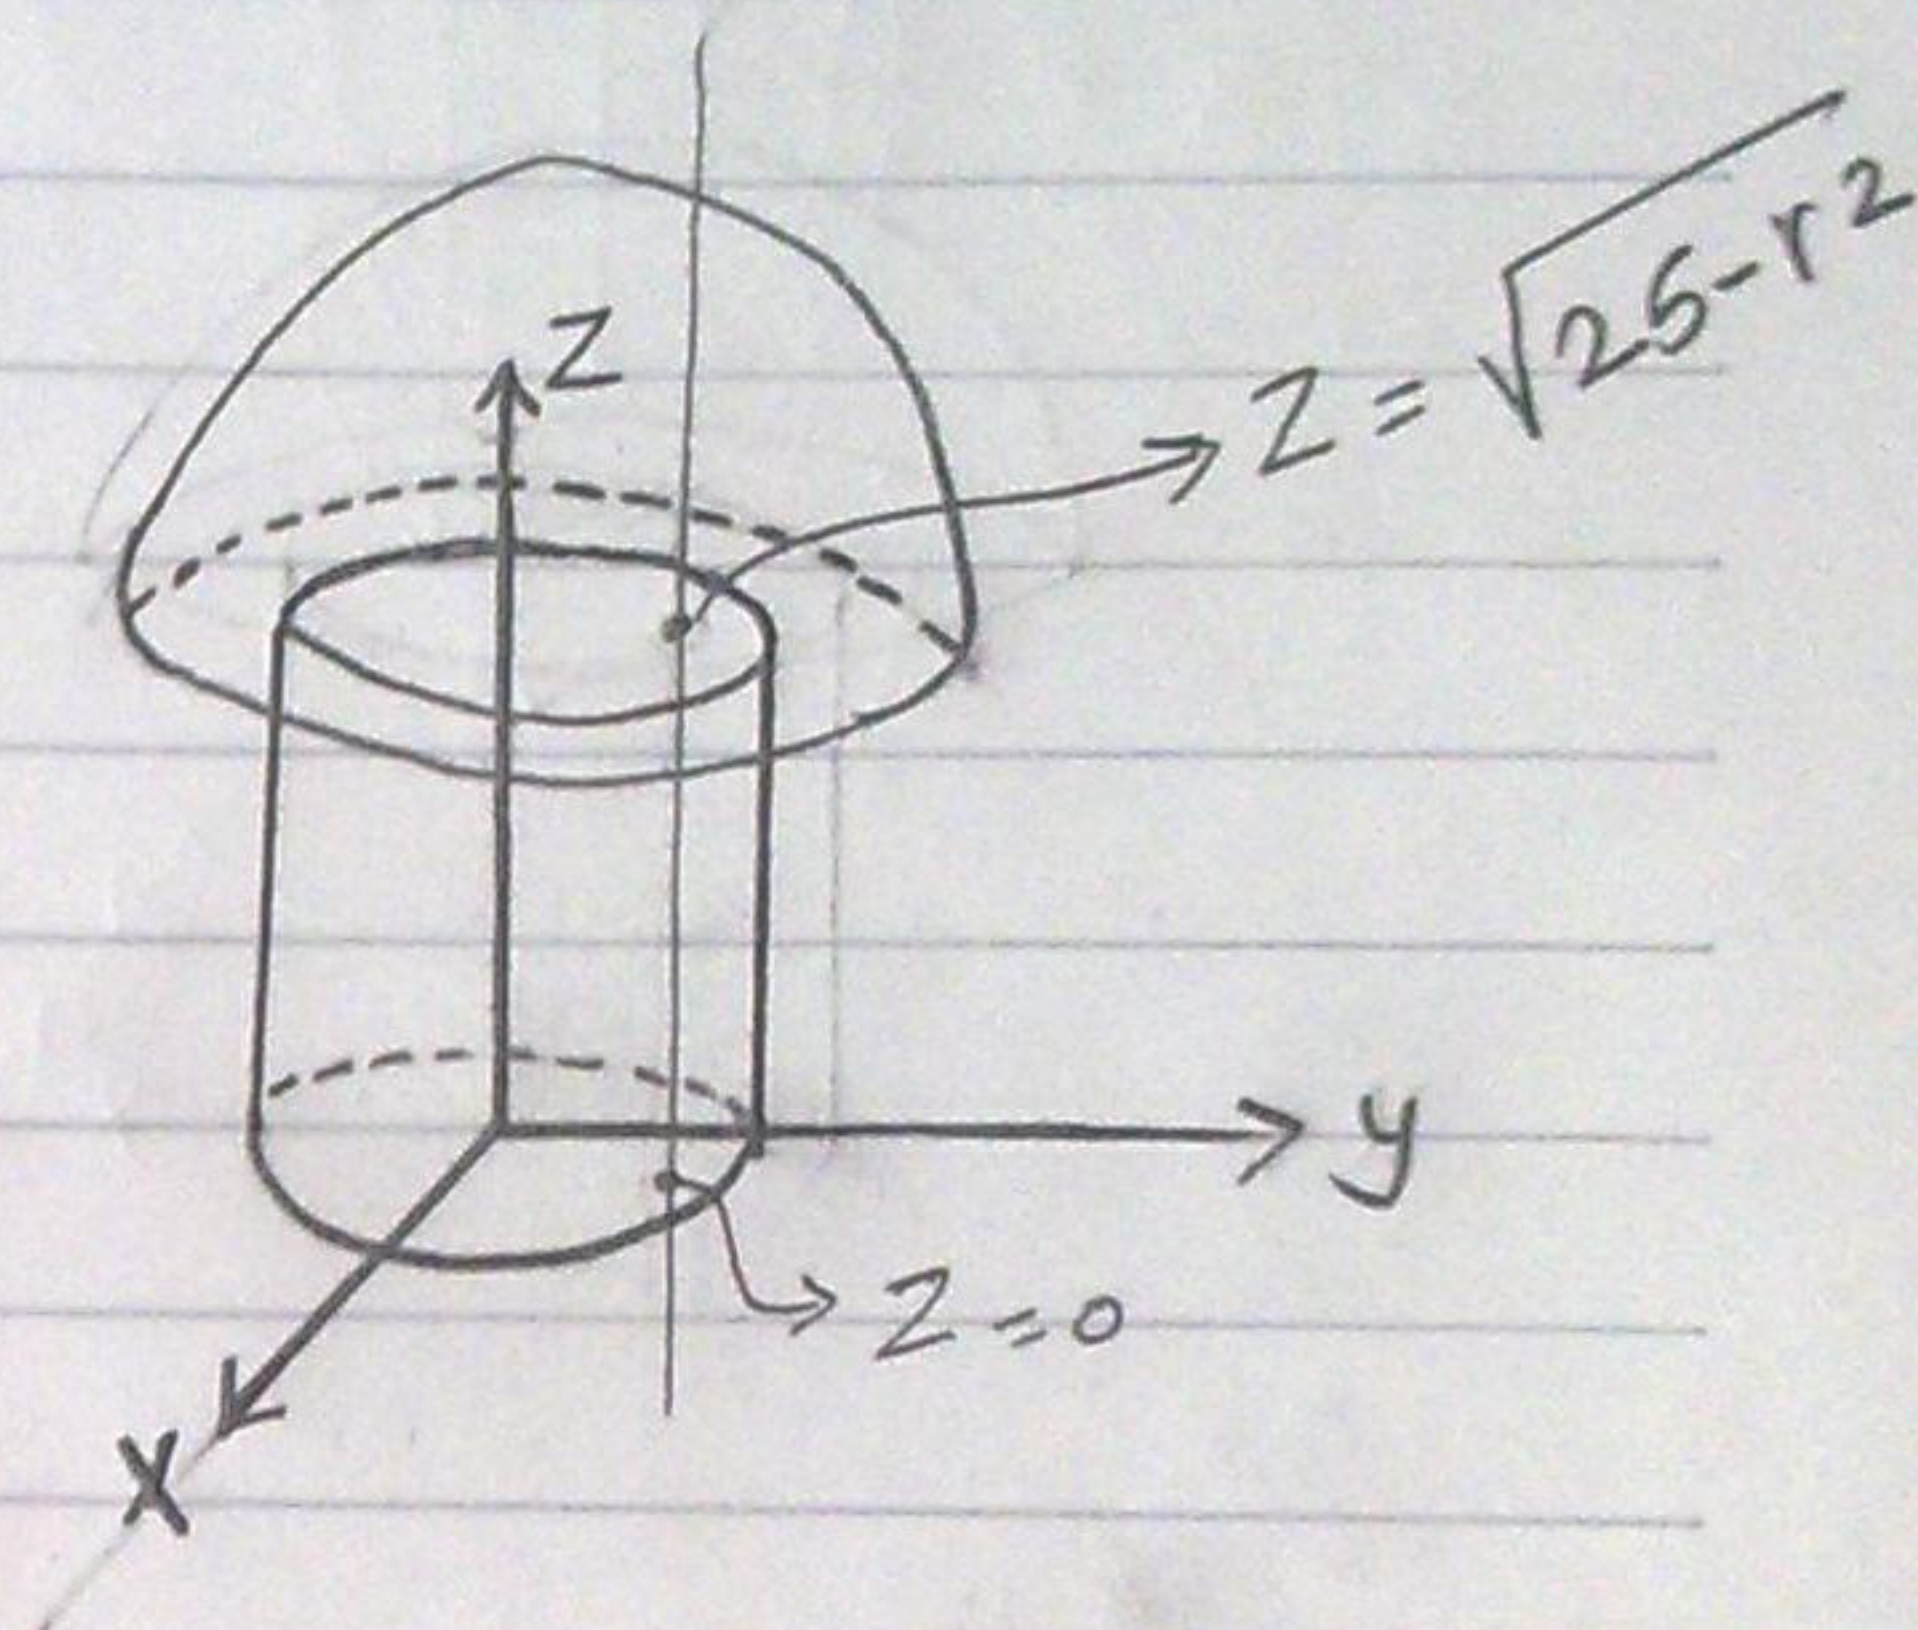 Z
Z = √25-r²
y
Z=0
X